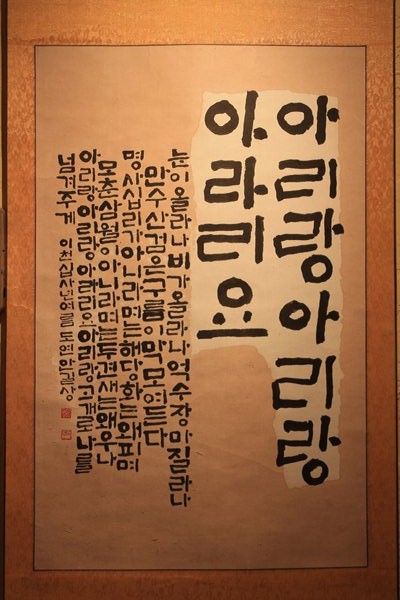 아리랑아리랑
아라리요
눈이올라나비가올라나억수장마질라나
만수산검은구름이막모여든다
명사십리가아니라면해당화는왜피며
모춘삼월이아니라면두견새는왜우나
아리랑아리랑아라리요아리랑고개로나를
넘겨주게 이천십사년여름도연안길상